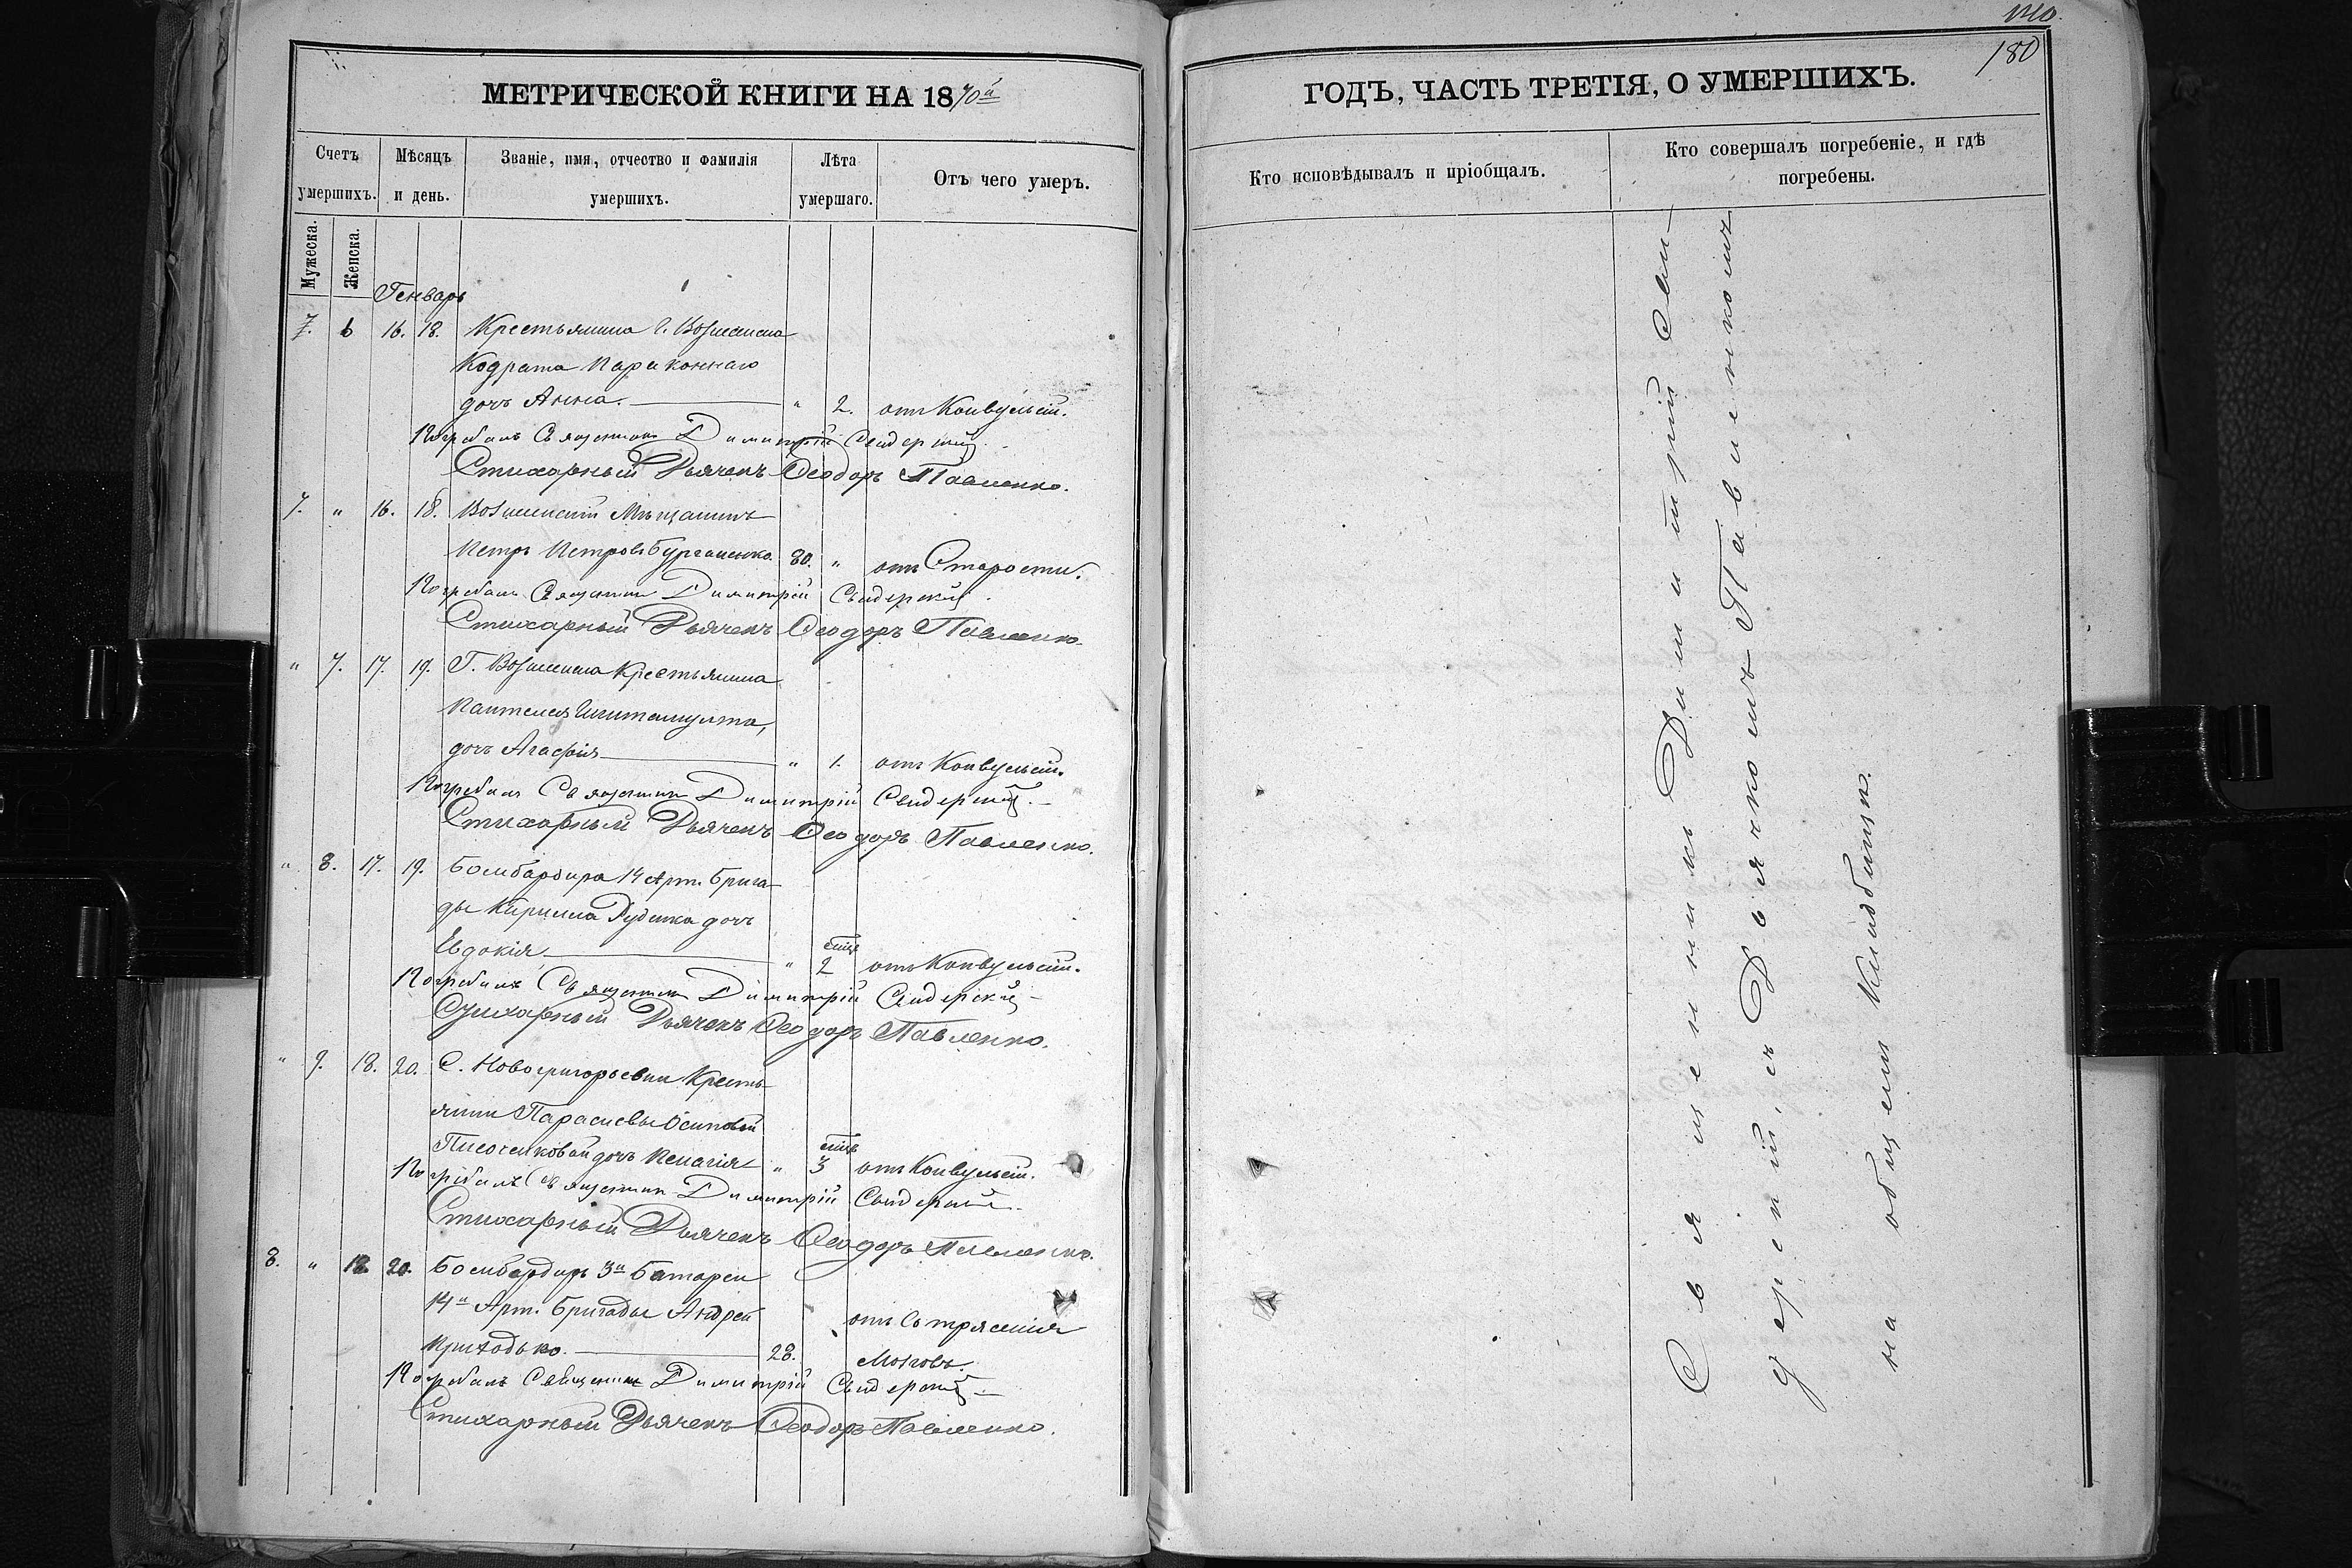 МЕТРИЧЕСКОЙ КНИГИ НА 1870й
Счетъ умершихъ.
Мужеска.
Женска.
Мѣсяцъ и день.
Званіе, имя, отчество и фамилія умершихъ.
Лѣта умершаго.
Отъ чего умеръ.
Генварь
7. 6 16. 18. Крестьянина г. Вознесенска
Кодрата
дочь Анна. " 2. отъ Конвульсій.
Погребалъ Священникъ Димитрій Свидерскій.
Стихарный Дьячекъ Ѳеодоръ Павленко.
7. " 16. 18. Вознесенскій Мѣщанинъ
Петръ Петровъ 80. " отъ Старости.
Погребалъ Священникъ Димитрій Свидерскій.
Стихарный Дьячекъ Ѳеодоръ Павленко.
" 7. 17. 19. Г. Вознесенска Крестьянина
Пантелея
дочь Агафія " 1. отъ Конвульсій.
Погребалъ Священникъ Димитрій Свидерскій.
Стихарный Дьячекъ Ѳеодоръ Павленко.
" 8. 17. 19. Бомбардира 14 Арт. Брига
ды Кирилла Руденка дочь
Евдокія " 2 отъ Конвульсій.
Погребалъ Священникъ Димитрій Свидерскій
Стихарный Дьячекъ Ѳеодоръ Павленко.
" 9. 18. 20. С. Новогригорьевки Кресть
янки Парасковы Осиповой
дочь Пелагія " 3 отъ Конвульсій.
Погребалъ Священникъ Димитрій Свидерскій
Стихарный Дьячекъ Ѳеодоръ Павленко.
8. " 18. 20. Бомбардиръ 3й Батареи
14й Арт. Бригады Андрей
Приходько. 28. отъ Сотрясенія
Мозговъ.
Погребалъ Священникъ Димитрій Свидерскій
Стихарный Дьячекъ Ѳеодоръ Павленко.
180
ГОДЪ, ЧАСТЬ ТРЕТІЯ, О УМЕРШИХЪ.
Кто исповѣдывалъ и пріобщалъ.
Кто совершалъ погребеніе, и гдѣ погребены.
Священникъ Димитрій Сви-
дерскій, съ Дьячкомъ Павленкомъ
на общемъ Кладбищѣ.